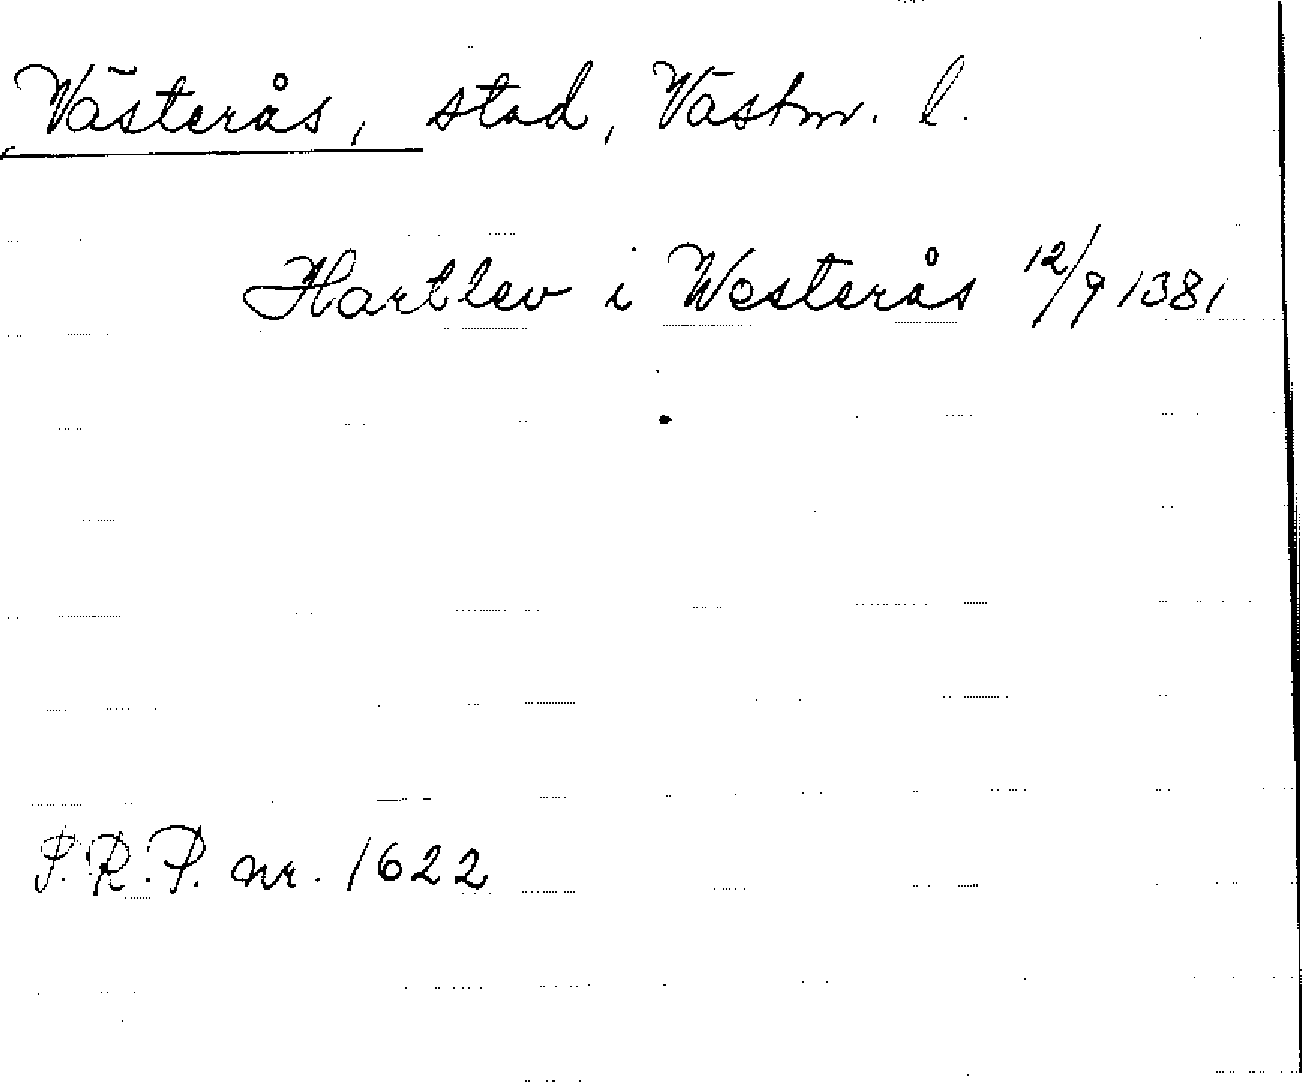 Västerås, stad, Västm. l.
Hartlev i Westerås 12/9 1381
P.R.P. nr. 1622